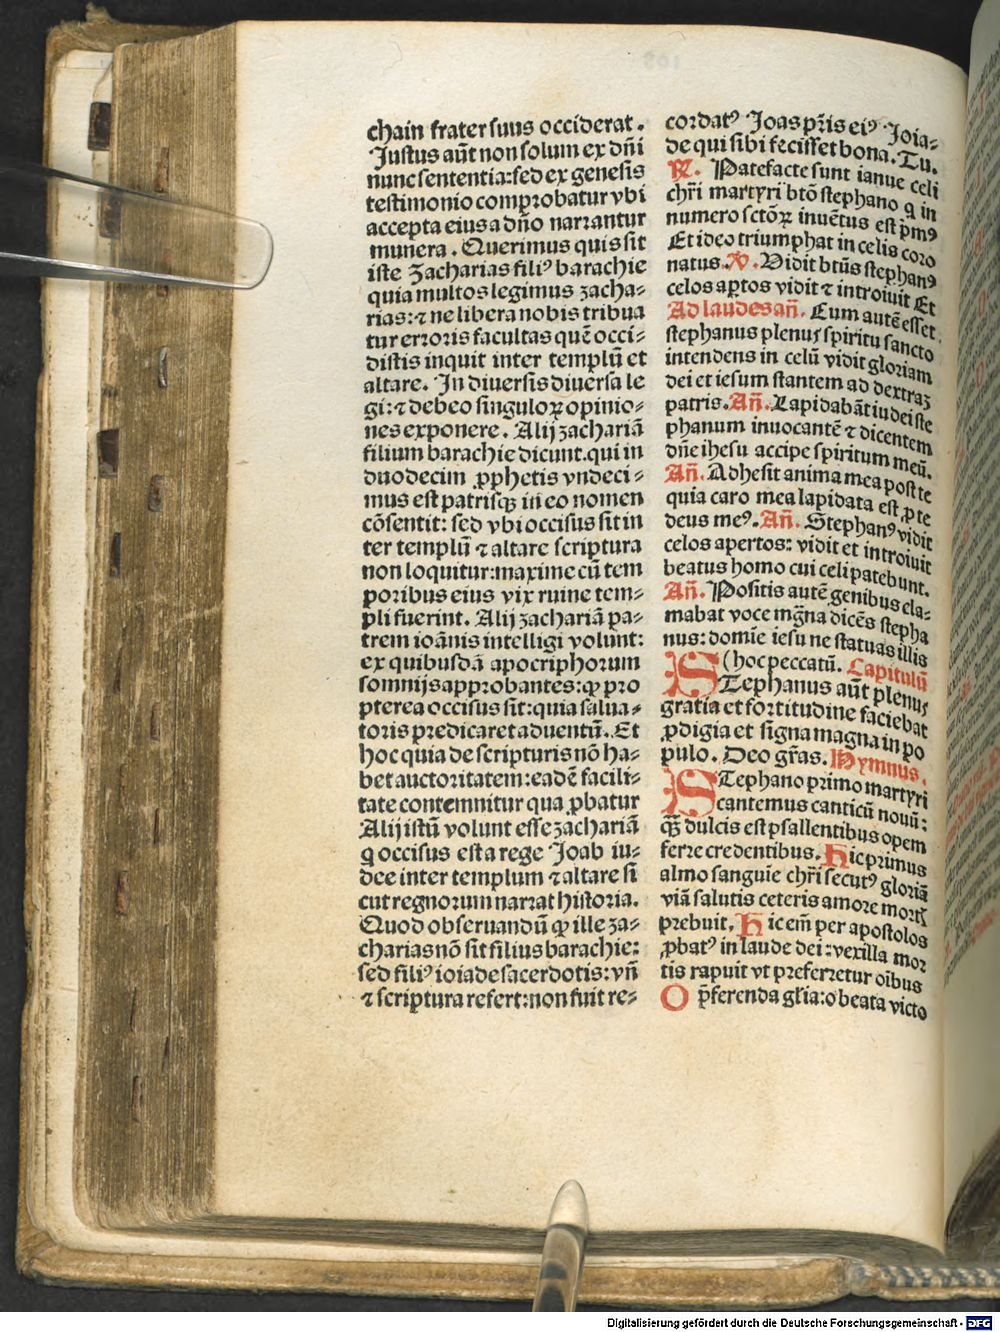 chain frater suus occiderat.
Justus aūt non solum ex dñi
nunc sententia: sed ex genesis
testimonio comprobatur vbi
accepta eius a dño narrantur
munera. Querimus quis sit
iste Zacharias filiꝰ barachie
quia multos legimus zacha⸗
rias: ⁊ ne libera nobis tribua
tur erroris facultas quē occi⸗
distis inquit inter templū et
altare. In diuersis diuersa le
gi: ⁊ debeo singuloꝝ opinio⸗
nes exponere. Alij zachariā
filium barachie dicunt. qui in
duodecim ꝓphetis vndeci⸗
mus est patrisqꝫ in eo nomen
cōsentit: sed vbi occisus sit in
ter templū ⁊ altare scriptura
non loquitur: maxime cū tem
poribus eius vix ruine tem⸗
pli fuerint. Alij zachariā pa⸗
trem ioānis intelligi volunt:
ex quibusdā apocriphorum
somnijs approbantes: ꝙ pro
pterea occisus sit: quia salua⸗
toris predicaret aduentū. Et
hoc quia de scripturis nō ha⸗
bet auctoritatem: eadē facili⸗
tate contemnitur qua ꝓbatur
Alij istū volunt esse zachariā
q occisus est a rege Joab iu⸗
dee inter templum ⁊ altare si
cut regnorum narrat historia.
Quod obseruandū ꝙ ille za⸗
charias nō sit filius barachie:
sed filiꝰ ioiade sacerdotis: vñ
⁊ scriptura refert: non fuit re⸗
cordatꝰ Joas pr̄is eiꝰ Joia⸗
de qui sibi fecisset bona. Tu.
℟. Patefacte sunt ianue celi
chr̄i martyri btō stephano q in
numero sctōꝝ inuētus est p̄mꝰ
Et ideo triumphat in celis coro
natus. ℣. Vidit btūs stephanꝰ
celos aꝑtos vidit ⁊ introiuit Et
Ad laudes añ. Cum autē esset
stephanus plenus spiritu sancto
intendens in celū vidit gloriam
dei et iesum stantem ad dextraꝫ
patris. Añ. Lapidabāt iudei ste
phanum inuocantē ⁊ dicentem
dñe ihesu accipe spiritum meū.
Añ. Adhesit anima mea post te
quia caro mea lapidata est ꝓ te
deus meꝰ. Añ. Stephanꝰ vidit
celos apertos: vidit et introiuit
beatus homo cui celi patebunt.
Añ. Positis autē genibus cla⸗
mabat voce mg̃na dicēs stepha
nus: domīe iesu ne statuas illis
(hoc peccatū. Capitulū
STephanus aūt plenus
gratia et fortitudine faciebat
ꝓdigia et signa magna in po
pulo. Deo gr̄as. Hymnus.
STephano primo martyri
cantemus canticū nouū:
qꝫ dulcis est psallentibus opem
ferre credentibus. Hic primus
almo sanguie chr̄i secutꝰ gloriā
viā salutis ceteris amore mortꝭ
prebuit. Hic em̄ per apostolos
ꝓbatꝰ in laude dei: vexilla mor
tis rapuit vt preferretur oībus
O p̄ferenda gl̄ia: o beata victo
Digitalisierung gefördert durch die Deutsche Forschungsgemeinschaft - DFG